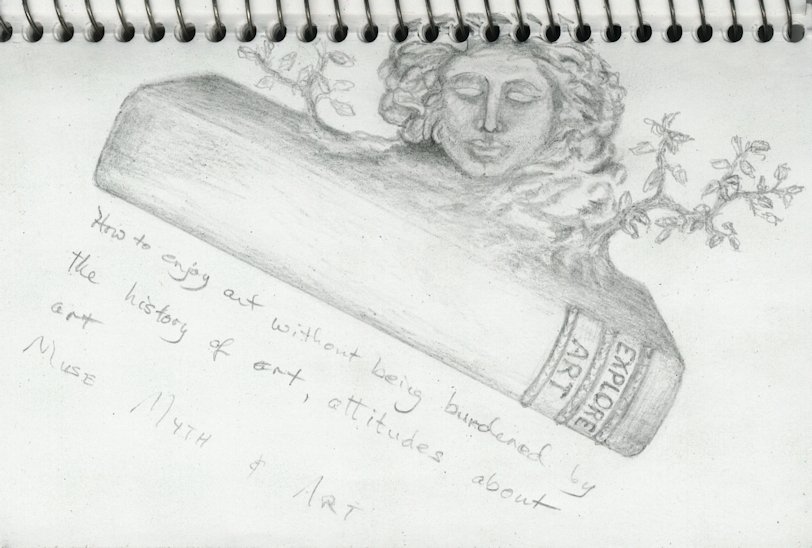 EXPLORE
ART
How to enjoy art without being burdened by
the history of art, attitudes about
art
MUSE MYTH & ART